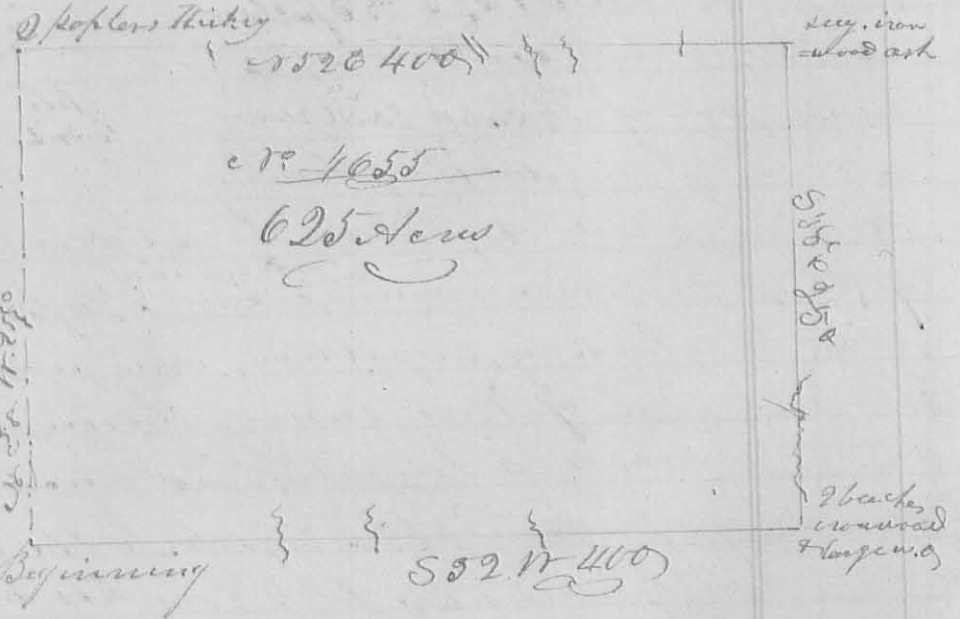 2 poplers & hickry
sug. iron
=wood ash
N 52 E 400
No 4655
625 Acres
S 38 E 250
N 38 W. 250
2 beaches
ironwood
& large w. o
Beginning
S 52. W 400